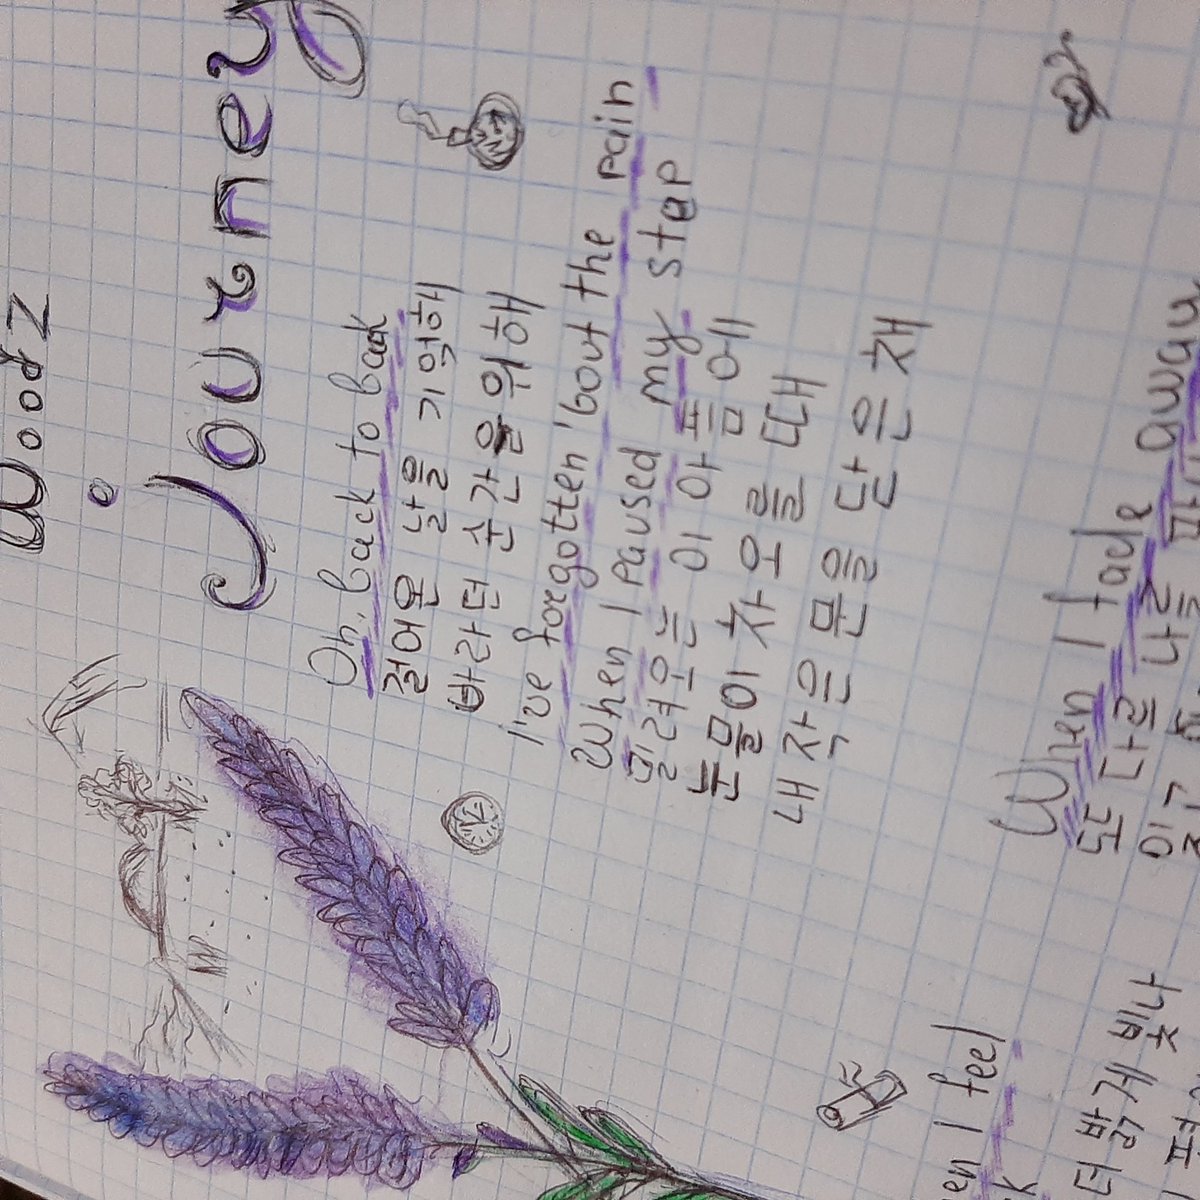 Woodz
Journey
Oh, back to back
걸어온 날을 기억해
바라던 순간을 위해
I've forgotten 'bout the pain
When I paused my step
밀려오는 이 아픔에
눈물이 차오를 때
내 작은 문을 닫은 채
When I fade away
또 다른 나를
I feel
더 밝게 빛나